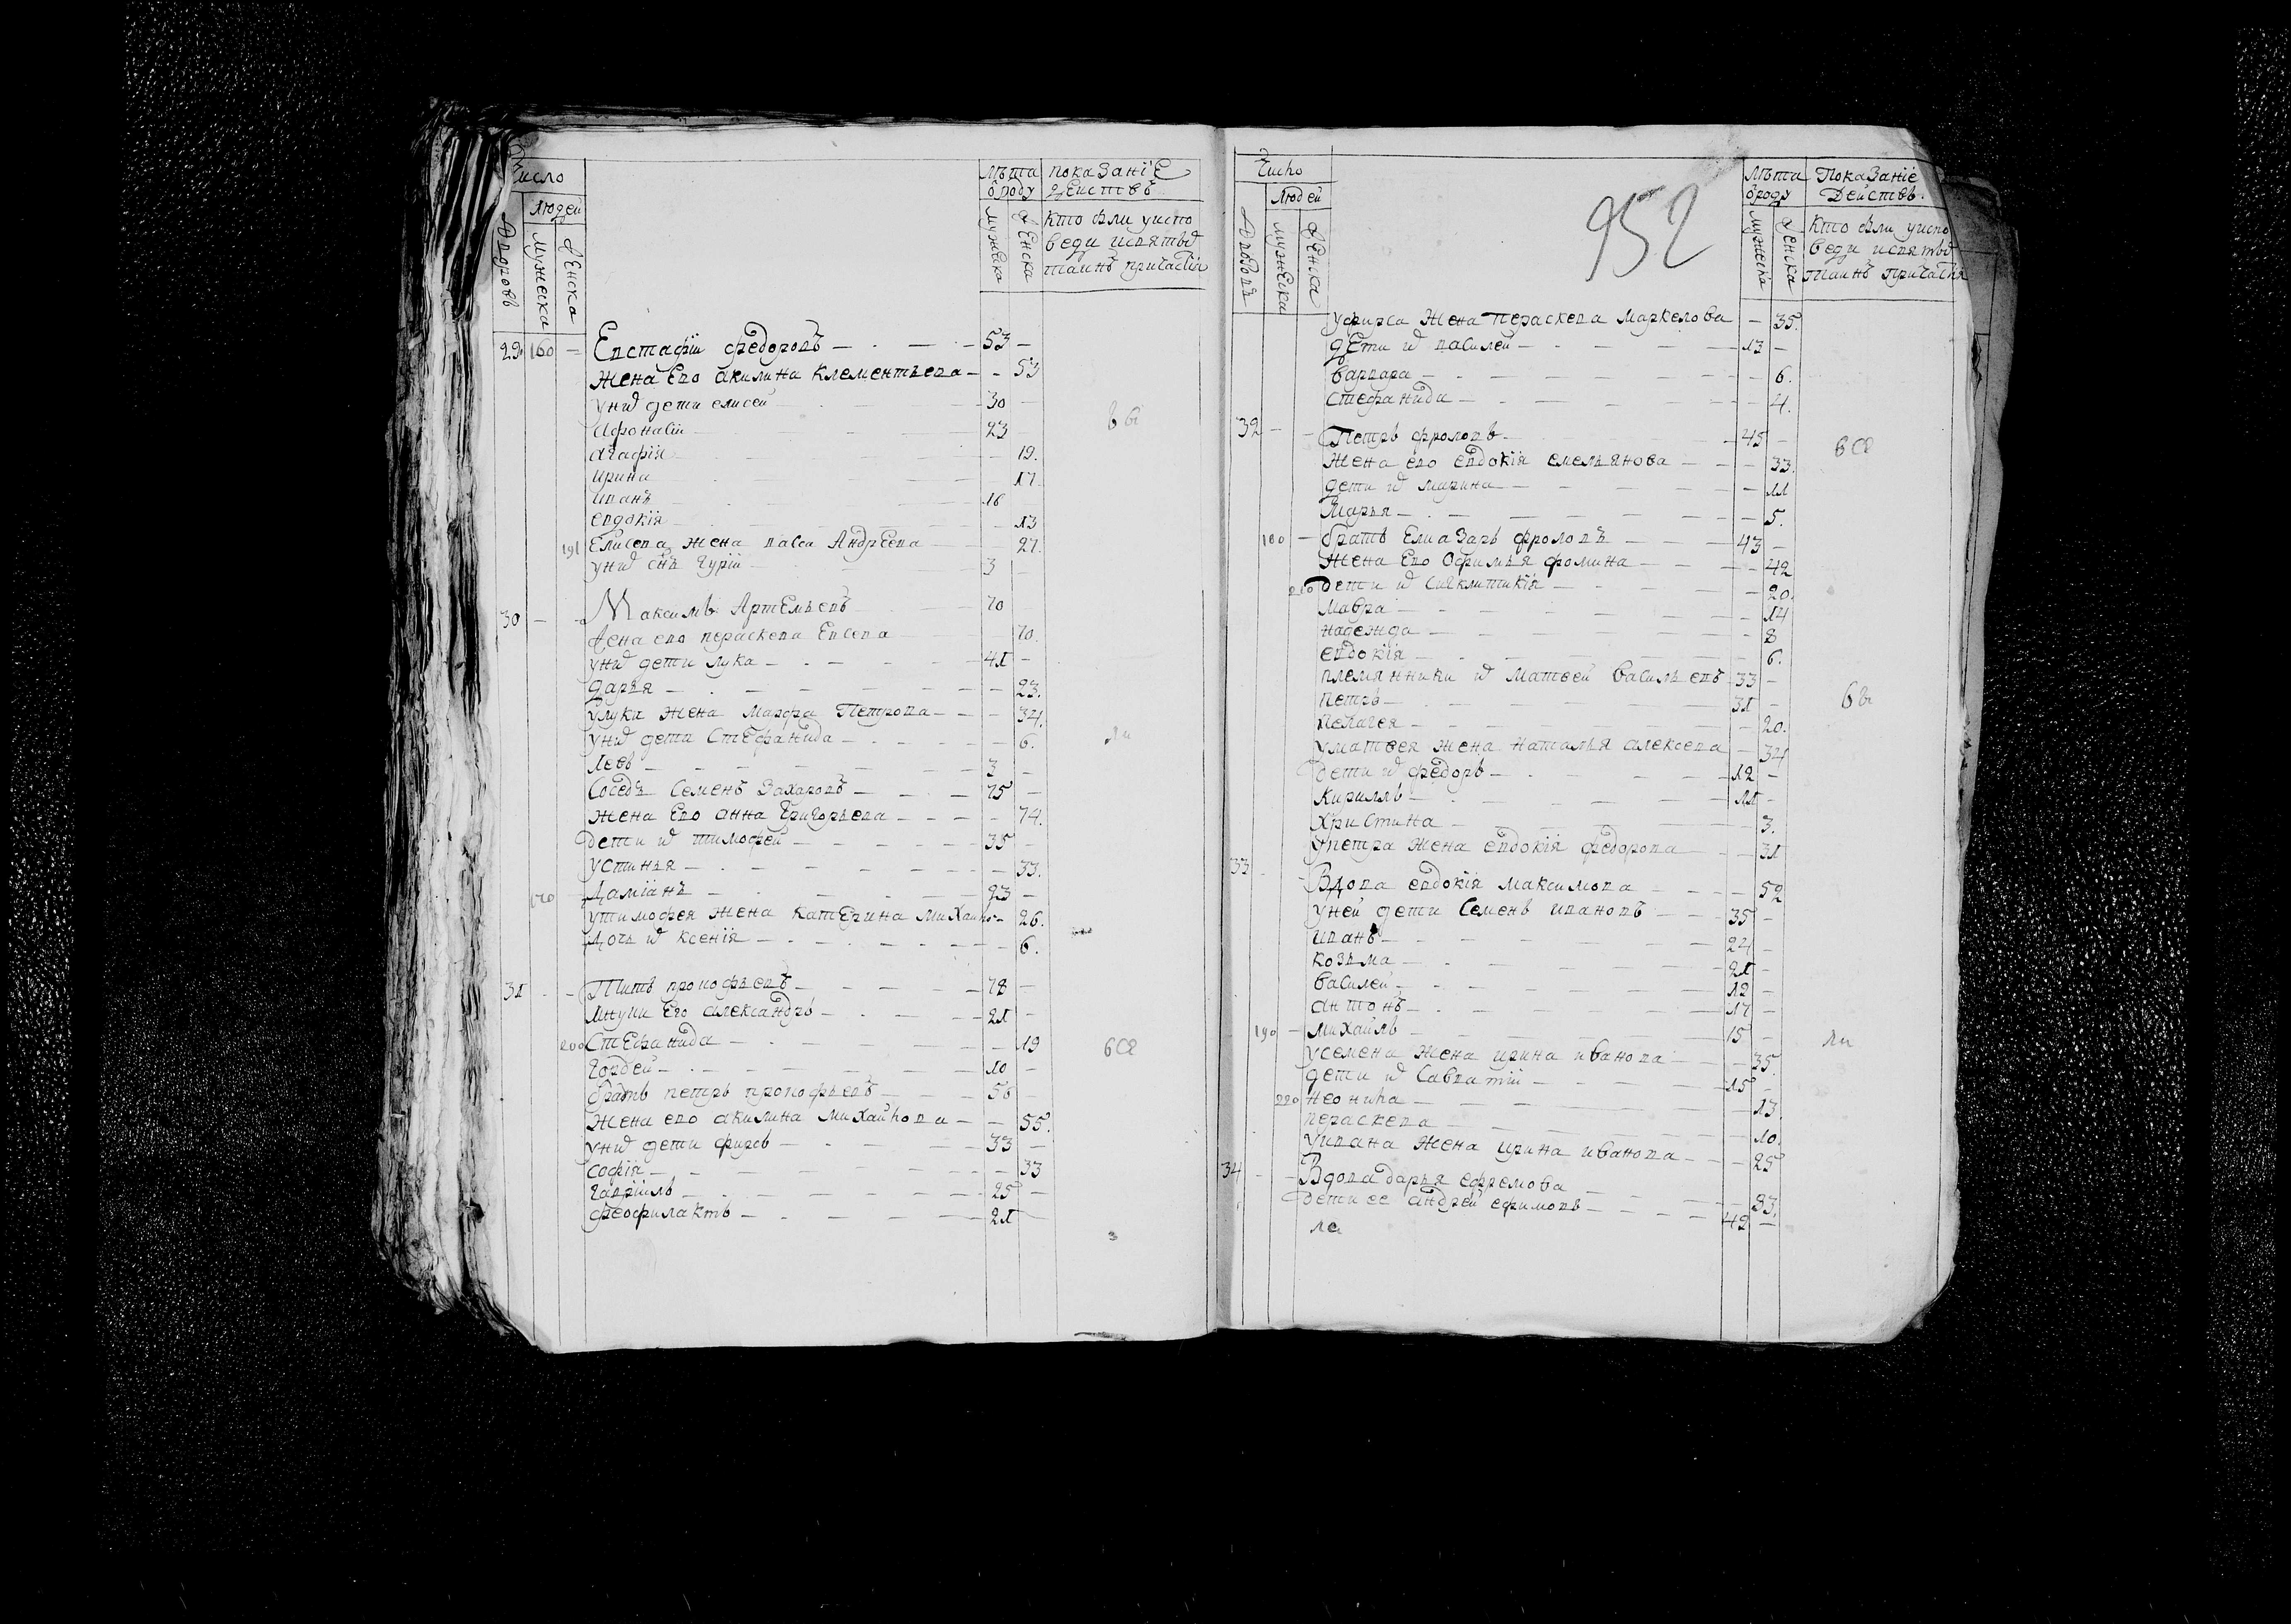 Число
Людей
Дворовъ
Мужеска
Женска
Лѣта
ѿ роду
Мужеска
Женска
показаніе
действъ
Кто были у испо
веди и святыхъ
таинъ причастія
29 160 – Евстафіи федоровъ – 53 –
жена ево акилина Клементьева – – 53
у них дети елисеи 30 –
Афонасіи 23
агафія 19.
ирина 17
иванъ 16
евдокія 13
191 Елисева жена васа Андреева 27.
у них снъ Гуріи 3
вы
30 – – Максимъ Артемьевъ 70
жена ево пераскева Евсева 70.
у них дети лука – 41 –
дарья – – 23.
у луки жена марфа Петрова – – 34.
у них дети Стефанида – – 6.
Левъ – 3 –
Соседъ Семенъ Захаровъ – 75 –
жена Ево анна Григорьева – – 74.
дети их тимофеи – 35 –
устинья – – 33.
170 – Даміанъ – 23 –
у тимофея жена катерина михаило – 26.
Дочь их ксенія – – 6.
ли
31 – – Титъ прокофьевъ – 78 –
Внуки Его александръ – 21 –
200 Стефанида – – 19
Гордеи – 10 –
братъ петръ прокофьевъ – 56 –
жена ево акилина михаилова – – 55.
у них дети фирсъ – 33 –
софія – – 33
Гавріилъ – 25 –
феофилактъ – 21 –
все
Число
Людей
Дворовъ
Мужеска
Женска
952
Лѣта
ѿ роду
Мужеска
Женска
Показаніе
Действъ.
Кто были у испо
веди и святыхъ
Таинъ причастія
у фирса жена пераскева Маркелова – 35.
дети их василеи – 13 –
варвара – – 6.
Стефанида – – 4.
32 – – Петръ фроловъ – 45 –
жена ево евдокія емельянова – – 33.
дети их марина – – 11
Марья – – 5.
180 – братъ Елиазаръ фроловъ – 43 –
жена Ево Офимья фомина – – 42
210 дети их Сигклитикія – – 20.
мавра – – 14
надежда – – 8
евдокія – – 6.
племянники их Матвеи васильевъ 33 –
петръ – 31 –
пелагея – – 20.
у матвея жена наталья алексева – 34
дети их федоръ – 12 –
кирилъ – 11 –
христина – – 3.
у петра жена евдокія федорова – – 31
все
вы
33 – – Вдова евдокія максимова – – 52
у ней дети Семенъ ивановъ – 35 –
иванъ – 24 –
козьма – 21 –
василеи – 12 –
антонъ – 17 –
190 – михаилъ – 15 –
у семена жена ирина иванова – 35.
дети их Савватіи – 15 –
220 неонила – – 13.
пераскева – – 10.
у ивана жена ирина иванова – – 25
ли
34 – – Вдова дарья ефремова – – 83.
дети ее андреи ефимовъ – 42 –